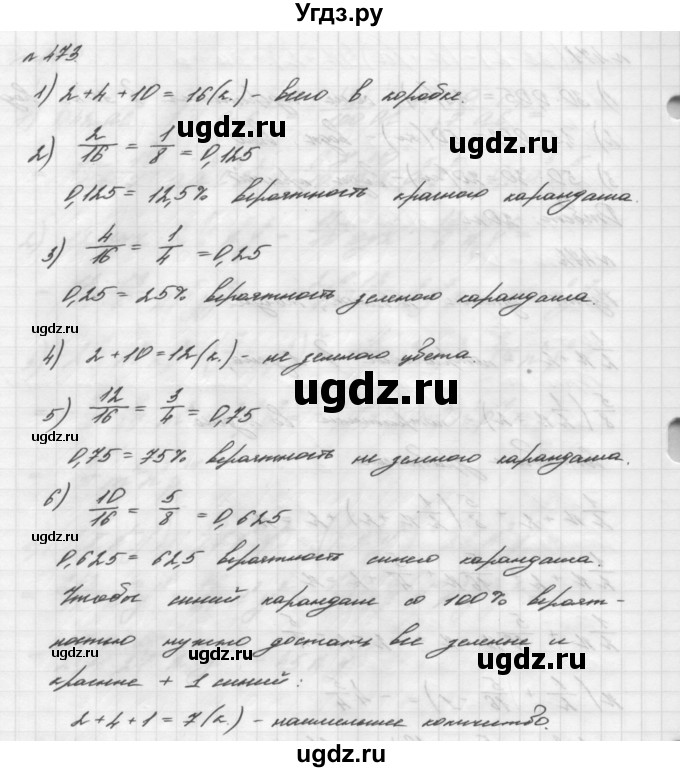 Угдз.ру
n 473
1) 2+4+10 = 16(к.) - всего в коробке.
ugdz.ru
ugdz.ru
2) 2/16 = 1/8 = 0,125
0,125 = 12,5% вероятность красного карандаша.
3) 4/16 = 1/4 = 0,25
ugdz.ru
0,25 = 25% вероятность зеленого карандаша.
ugdz.ru
4) 2+10 = 12(к.) - не зеленого цвета.
ugdz.ru
5) 12/16 = 3/4 = 0,75
ugdz.ru
0,75 = 75% вероятность не зеленого карандаша.
6) 10/16 = 5/8 = 0,625
ugdz.ru
0,625 = 62,5 вероятность синего карандаша.
Чтобы синий карандаш со 100% вероят-
ностью нужно достать все зеленые и
ugdz.ru
ugdz.ru
ugdz.ru
красные + 1 синий:
2+4+1 = 7(к.) - наименьшее количество.
ugdz.ru